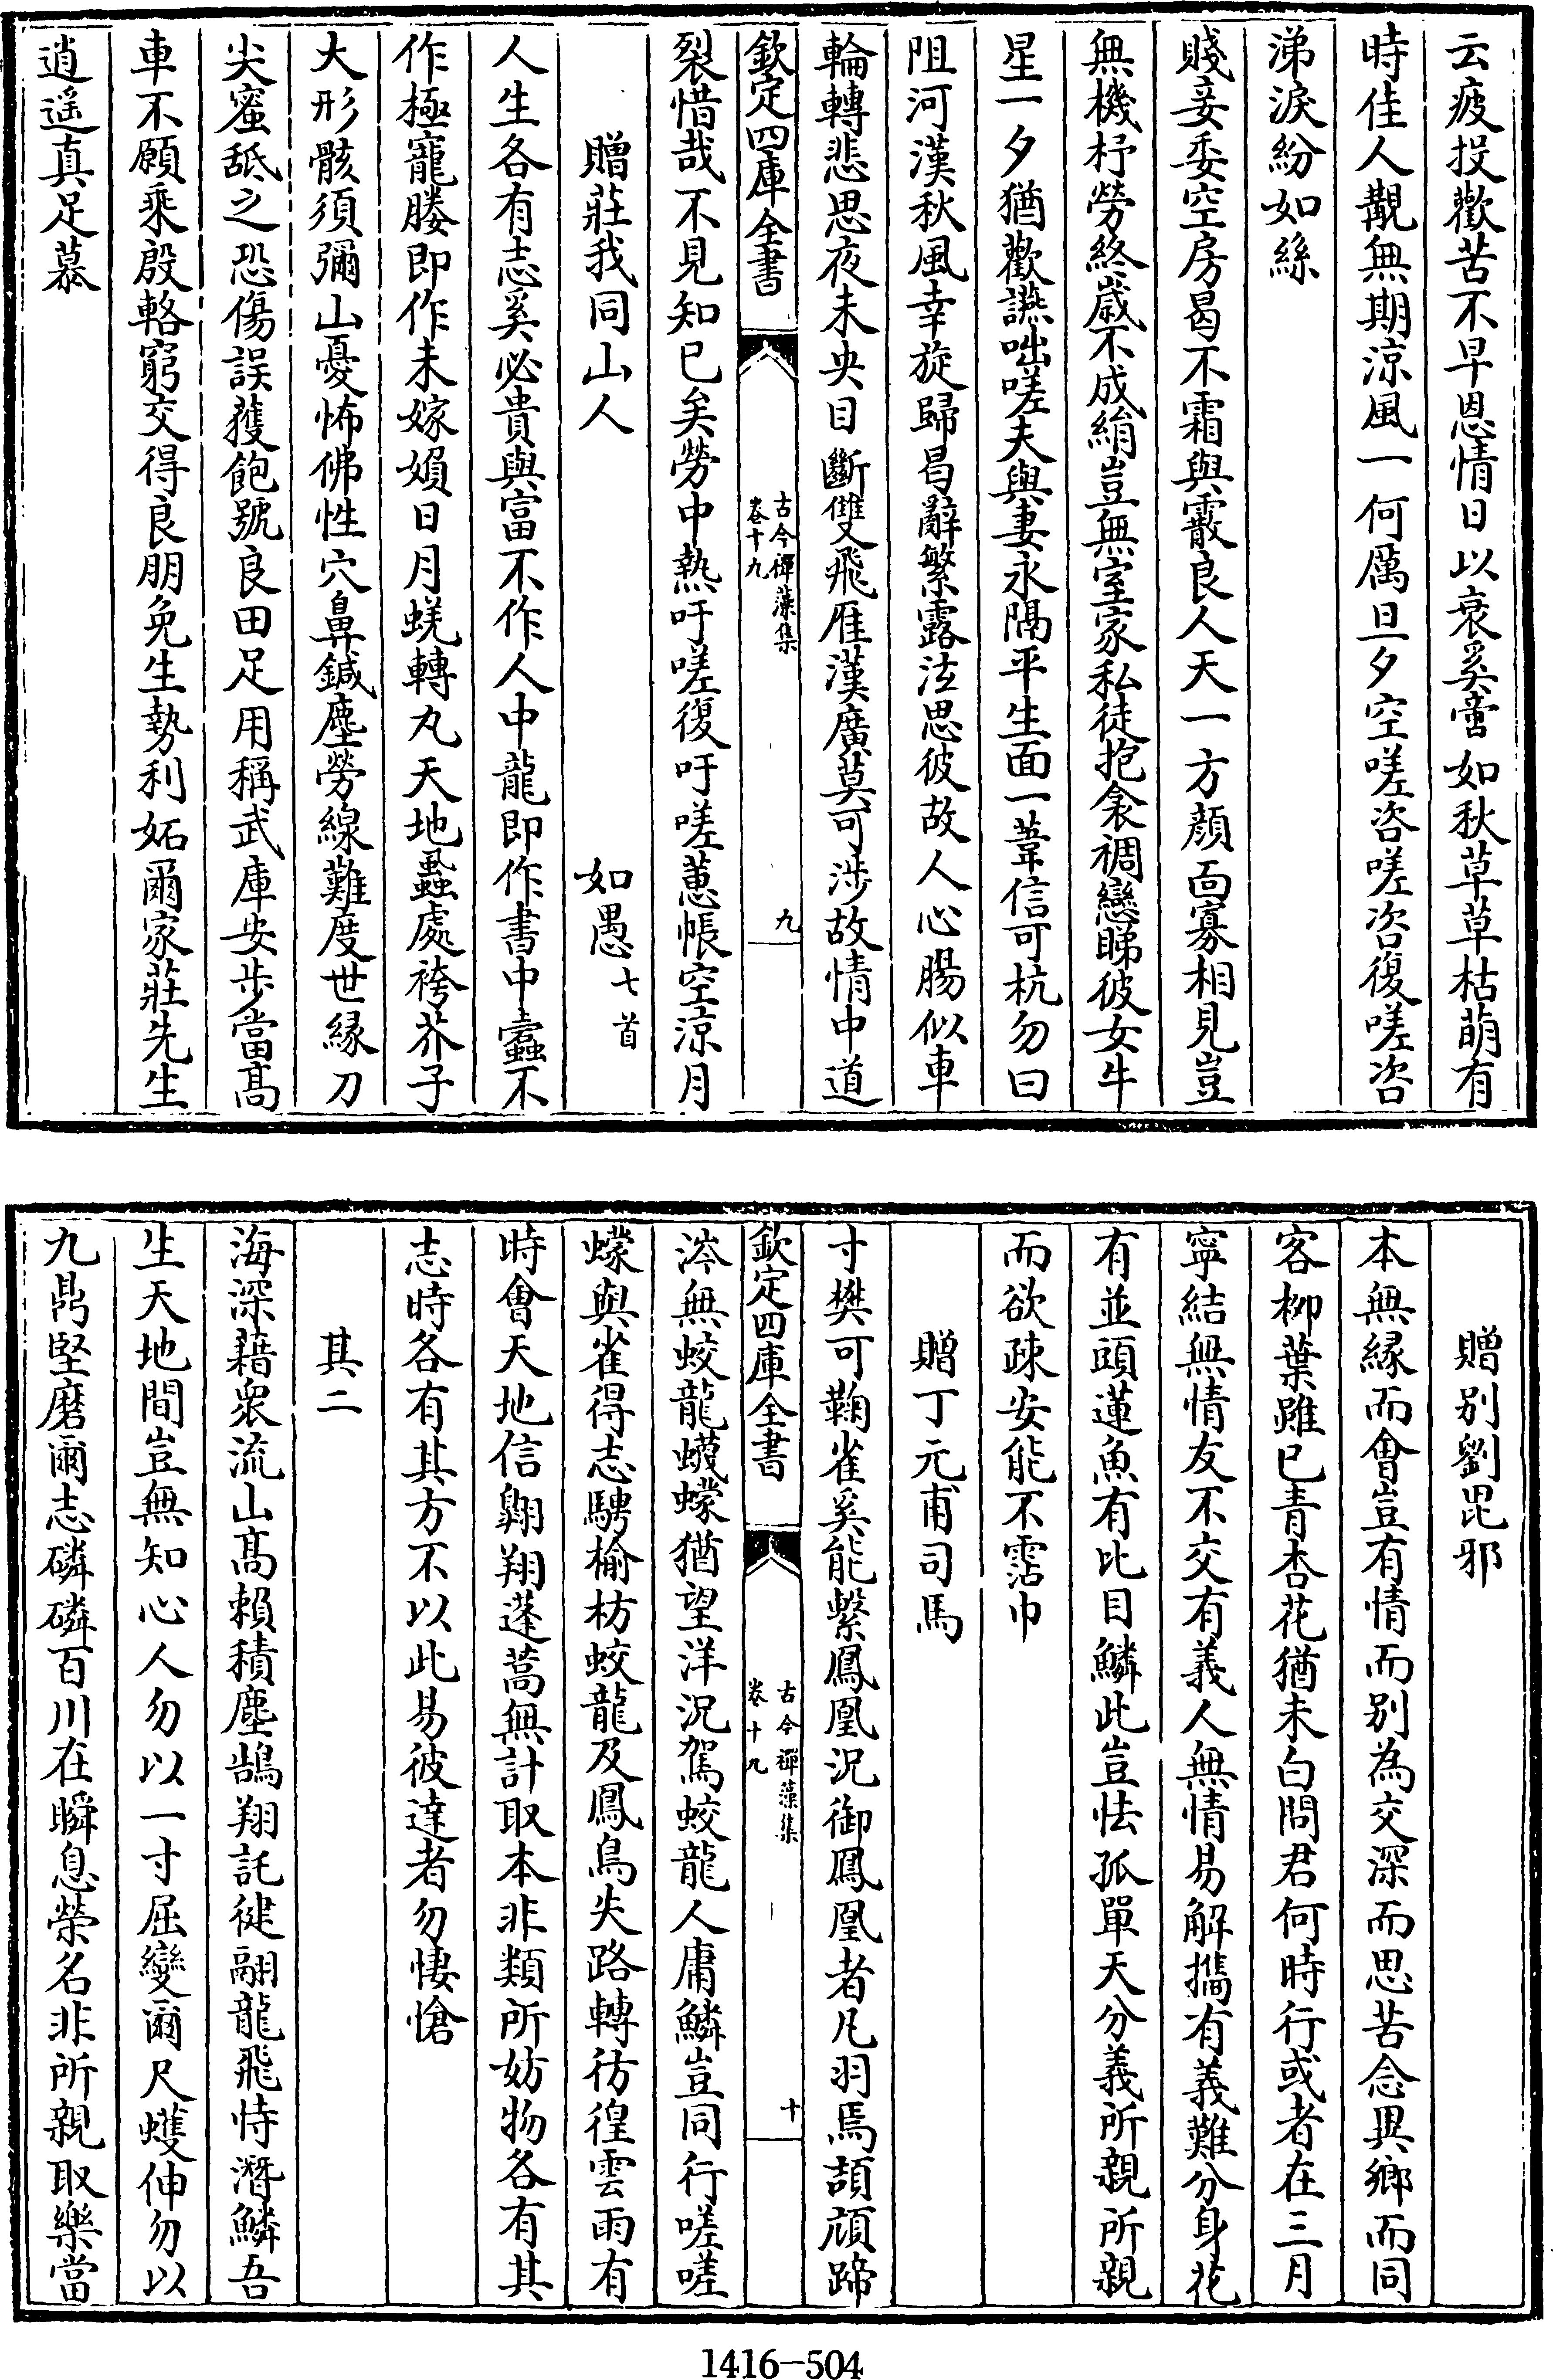 云疲投歡苦不早恩情日以衰奚啻如秋草草枯萌有
時佳人覯無期涼風一何厲旦夕空嗟咨嗟咨復嗟咨
涕淚紛如絲
賤妾委空房曷不霜與霰良人天一方顔面寡相見豈
無機杼勞終嵗不成絹豈無室家私徒抱衾裯戀睇彼女牛
星一夕猶歡讌咄嗟夫與妻永隔平生面一葦信可杭勿曰
阻河漢秋風幸旋歸曷辭繁露泫思彼故人心腸似車
輪轉悲思夜未央目斷雙飛雁漢廣莫可涉故情中道
欽定四庫全書
古今禪藻集
卷十九
九
裂惜哉不見知已矣勞中熱吁嗟復吁嗟蕙帳空涼月
贈莊我同山人
如愚七首
人生各有志奚必貴與富不作人中龍即作書中蠹不
作極寵媵即作未嫁嬪日月蜣轉丸天地蝨處袴芥子
大形骸須彌山憂怖佛性穴鼻鍼塵勞線難度世縁刀
尖蜜舐之恐傷誤蒦飽號良田足用稱武庫安歩當髙
車不願乘殷輅窮交得良朋免生勢利妬爾家莊先生
逍遥真足慕
贈别劉毘邪
本無縁而會豈有情而别為交深而思苦念異鄉而同
客柳葉雖已青杏花猶未白問君何時行或者在三月
寧結無情友不交有義人無情易解攜有義難分身花
有並頭蓮魚有比目鱗此豈怯孤單天分義所親所親
而欲疎安能不霑巾
贈丁元甫司馬
寸樊可鞠雀奚能繫鳳凰況御鳳凰者凡羽焉頡頏蹄
欽定四庫全書
古今禪藻集
卷十九
十
涔無蛟龍蠛蠓猶望洋況駕蛟龍人庸鱗豈同行嗟嗟
蠓與雀得志騁榆枋蛟龍及鳳鳥失路轉彷徨雲雨有
時會天地信翺翔蓬蒿無計取本非類所妨物各有其
志時各有其方不以此易彼達者勿悽愴
其二
海深藉衆流山髙賴積塵鵠翔託健翮龍飛恃潛鱗吾
生天地間豈無知心人勿以一寸屈變爾尺蠖伸勿以
九鼎堅磨爾志磷磷百川在瞬息榮名非所親取樂當
1416-504